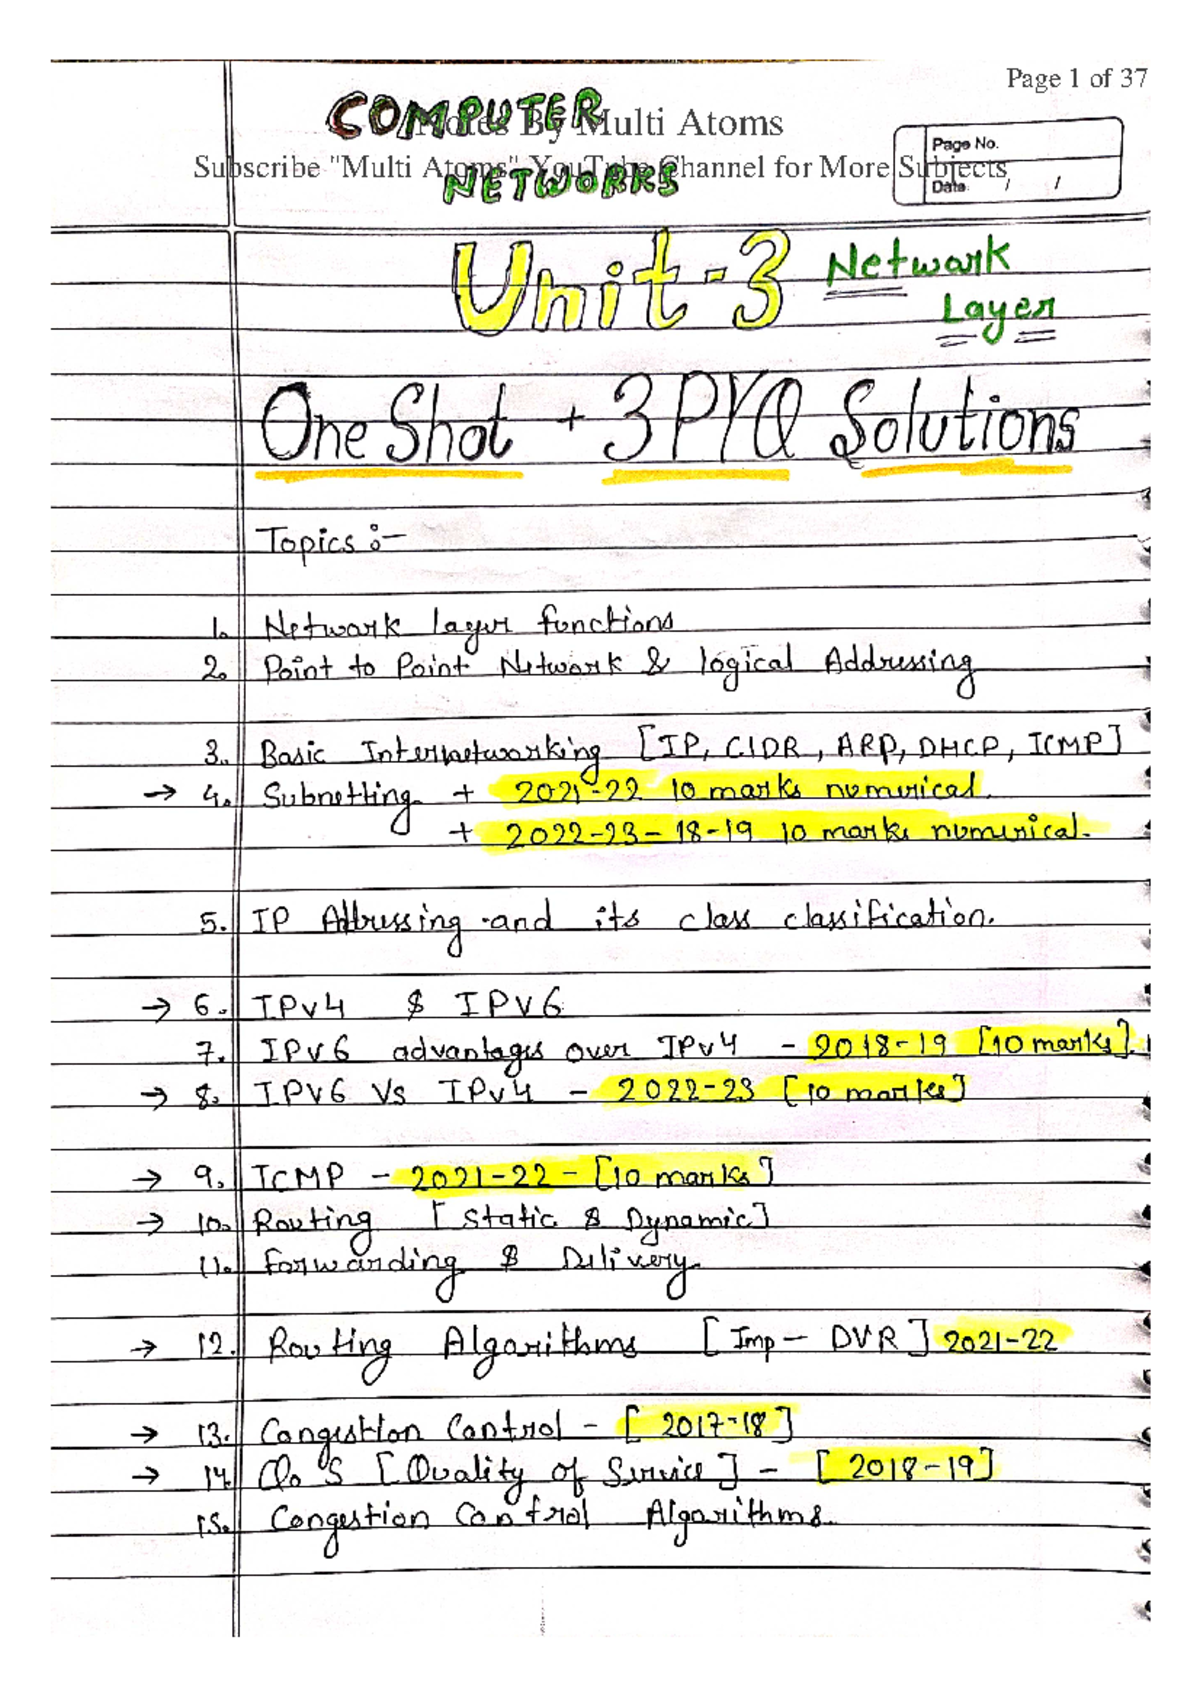 Page 1 of 37
COMPUTER
Notes By Multi Atoms
Subscribe "Multi Atoms" YouTube Channel for More Subjects
NETWORKS
Page No.
Date / /
Unit-3 Network
Layer
One Shot + 3 PYQ Solutions
Topics :-
1. Network layer functions
2. Point to Point Network & logical Addressing
3. Basic Internetworking [IP, CIDR, ARP, DHCP, ICMP]
→ 4. Subnetting + 2021-22 10 marks numerical.
+ 2022-23 - 18-19 10 marks numerical.
5. IP Addressing and its class classification.
→ 6. IPv4 & IPv6
7. IPv6 advantages over IPv4 - 2018-19 [10 marks]
→ 8. IPv6 Vs IPv4 - 2022-23 [10 marks]
→ 9. ICMP - 2021-22 - [10 marks]
→ 10. Routing [Static & Dynamic]
11. Forwarding & Delivery
→ 12. Routing Algorithms [Imp - DVR] 2021-22
→ 13. Congestion Control - [2017-18]
→ 14. Qo S [Quality of Service] - [2018-19]
15. Congestion Control Algorithms.